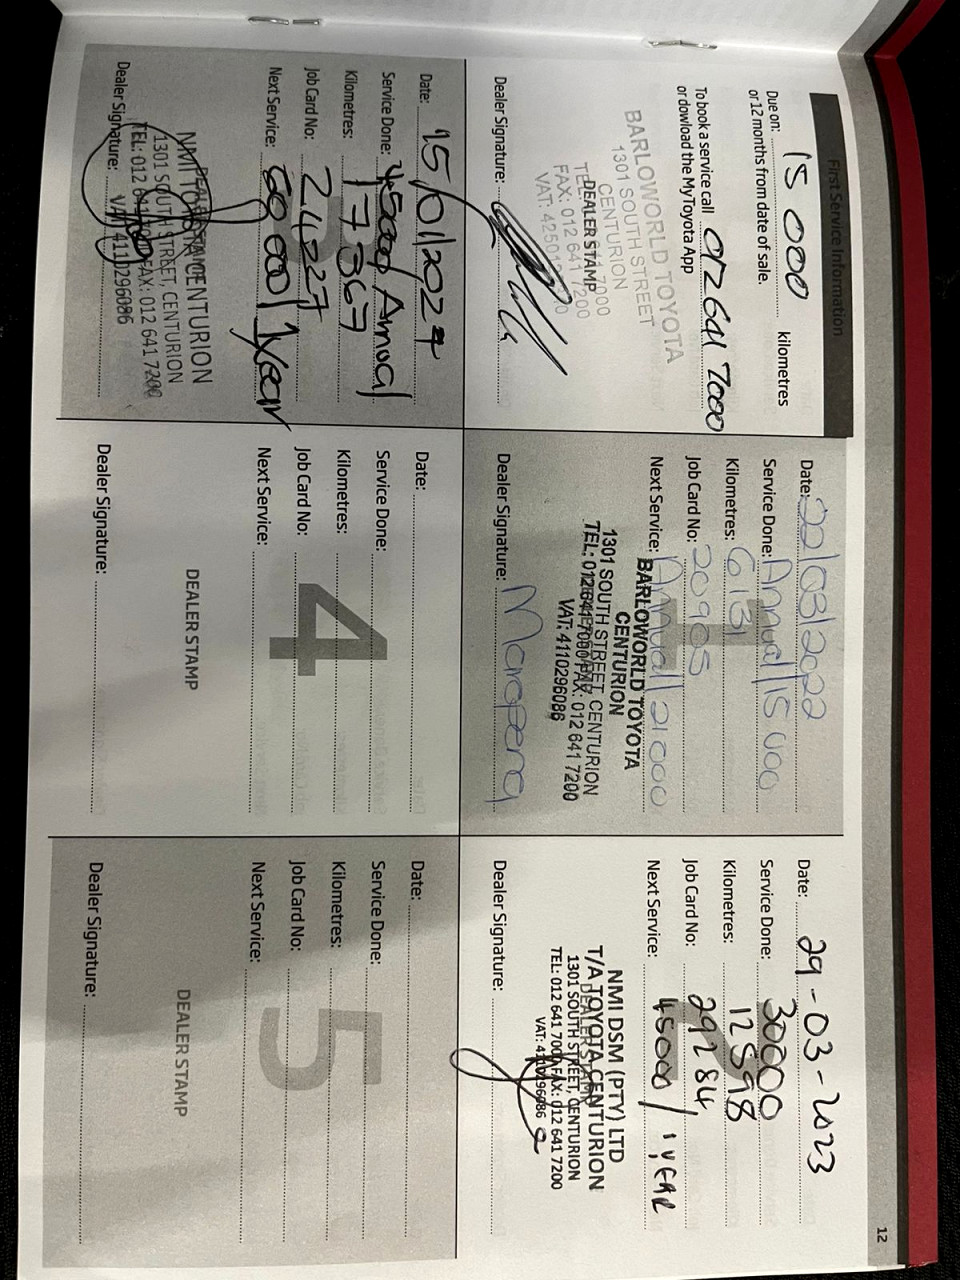 First Service Information
Due on: 15 000 kilometres
or 12 months from date of sale.
To book a service call 012 641 7000
or dowload the MyToyota App
BARLOWORLD TOYOTA
1301 SOUTH STREET
CENTURION
TEL: 012 641 7000
DEALER STAMP
FAX: 012 641 7200
VAT: 42501
Dealer Signature:
Date: 22/03/2022
Service Done: Annual/15 000
Kilometres: 6131
Job Card No: 20905
Next Service: Annual/21000
1
BARLOWORLD TOYOTA
CENTURION
1301 SOUTH STREET, CENTURION
TEL: 012 641 7000 FAX: 012 641 7200
VAT: 4110296086
Dealer Signature: Maropeng
Date: 29-03-2023
Service Done: 30000
Kilometres: 12598
Job Card No: 29284
Next Service: 45000/1 YEAR
2
NMI DSM (PTY) LTD
T/A TOYOTA CENTURION
DEALER STAMP
1301 SOUTH STREET, CENTURION
TEL: 012 641 7000 FAX: 012 641 7200
VAT: 4110296086
Dealer Signature:
Date: 15/01/2024
Service Done: 45000/Annual
Kilometres: 17367
Job Card No: 24227
Next Service: 60 000/1 year
3
NMI TOYOTA CENTURION
DEALER STAMP
1301 SOUTH STREET, CENTURION
TEL: 012 641 7000 FAX: 012 641 7200
VAT: 4110296086
Dealer Signature:
Date:
Service Done:
Kilometres:
Job Card No:
Next Service:
4
DEALER STAMP
Dealer Signature:
Date:
Service Done:
Kilometres:
Job Card No:
Next Service:
5
DEALER STAMP
Dealer Signature:
12